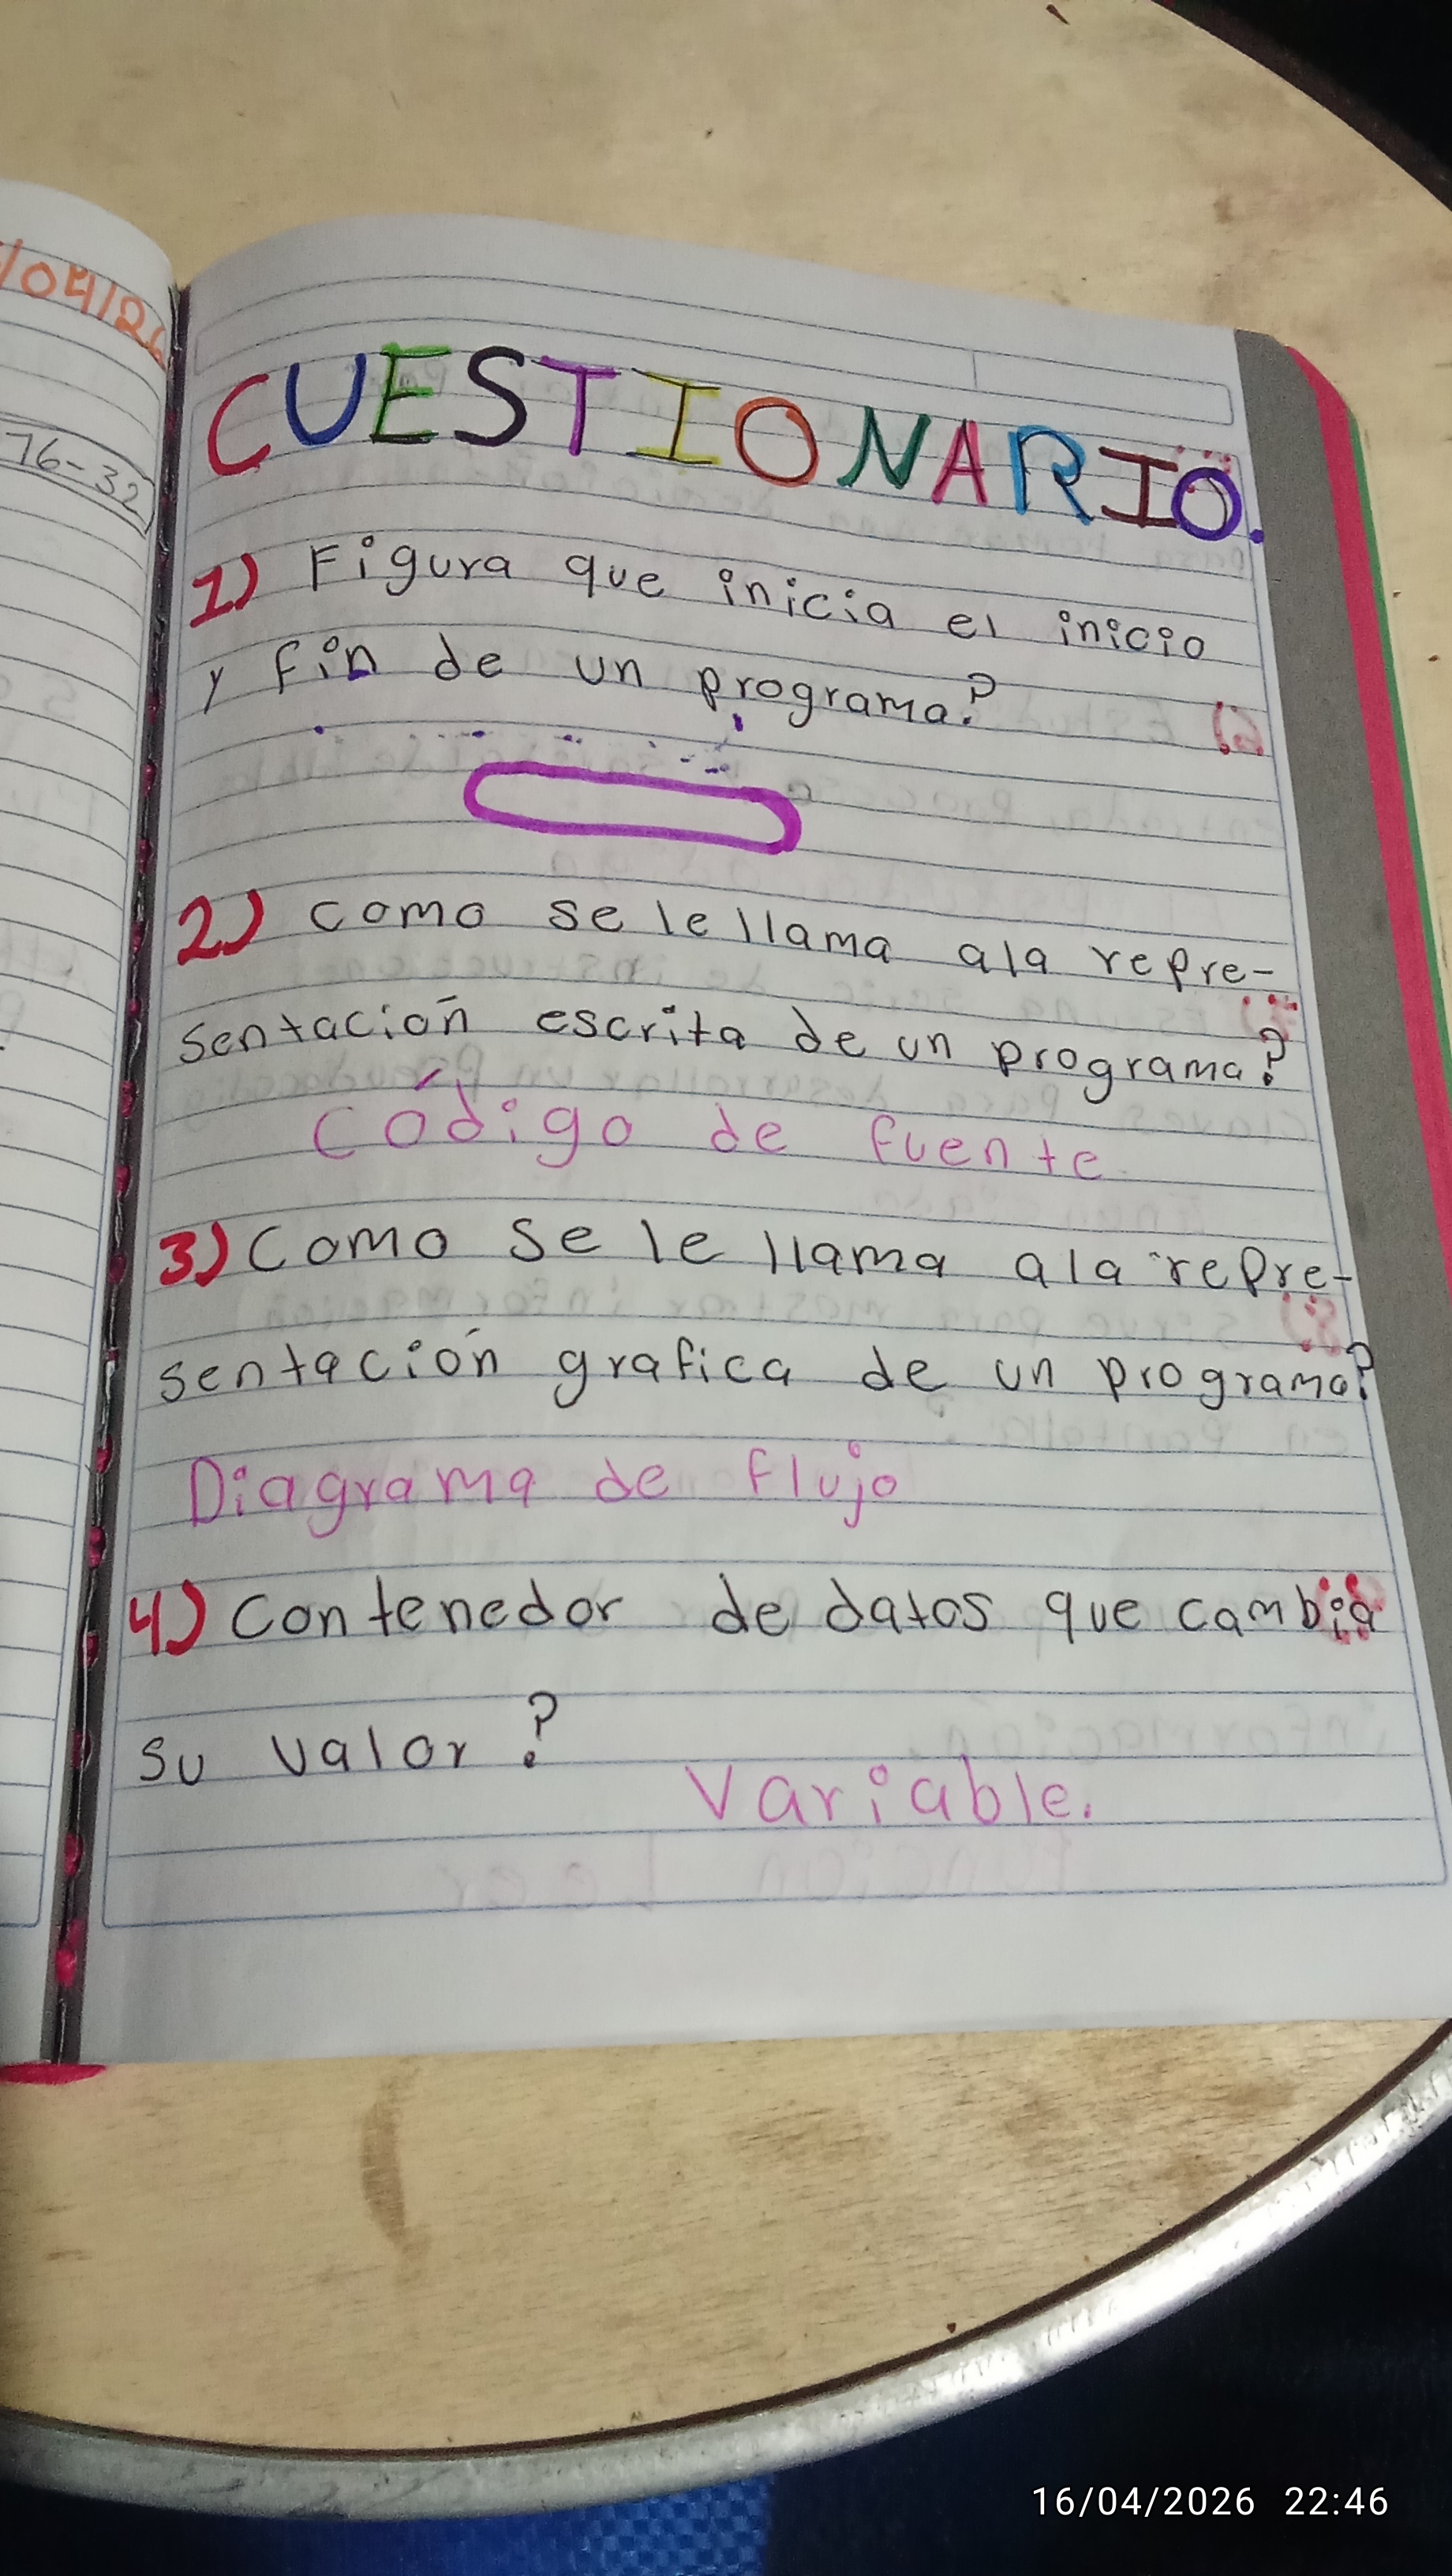 /04/26
76-32
CUESTIONARIO.
1) Figura que inicia el inicio
y fin de un programa?
2) como se le llama ala repre-
sentación escrita de un programa?
código de fuente
3) Como se le llama ala repre-
sentación grafica de un programa?
Diagrama de flujo
4) Contenedor de datos que cambia
su valor?
Variable.
16/04/2026 22:46